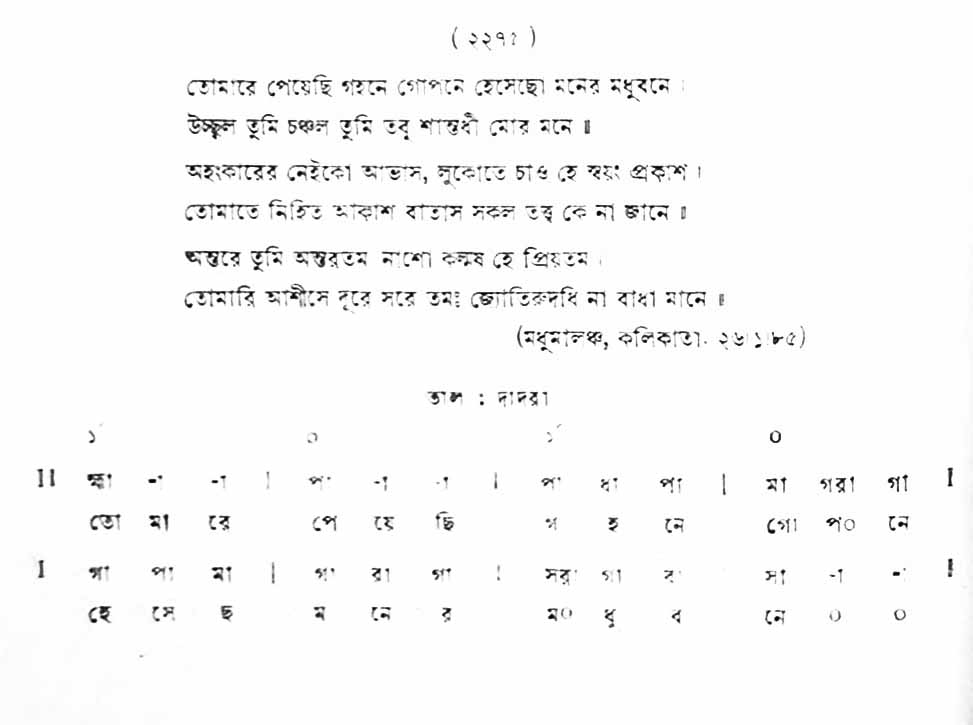 ( ২২৭১ )
তোমারে পেয়েছি গহনে গোপনে হেসেছো মনের মধুবনে ।
উচ্ছ্বল তুমি চঞ্চল তুমি তবু শান্তধী মোর মনে ॥
অহংকারের নেইকো আভাস, লুকোতে চাও হে স্বয়ং প্রকাশ ।
তোমাতে নিহিত আকাশ বাতাস সকল তত্ত্ব কে না জানে ॥
অন্তরে তুমি অন্তরতম নাশো কল্মষ হে প্রিয়তম ।
তোমারি আশীসে দূরে সরে তমঃ জ্যোতিরুদধি না বাধা মানে ॥
(মধুমালঞ্চ, কলিকাতা, ২৬।১।৮৫)
তাল : দাদরা
১´ ০ ১´ ০
II হ্মা -া -া | পা -া -া | পা ধা পা | মা গরা গা I
তো মা রে পে য়ে ছি গ হ নে গো প০ নে
I গা পা মা | গা রা গা | সরা গা রা সা -া -া I
হে সে ছ ম নে র ম০ ধু ব নে ০ ০